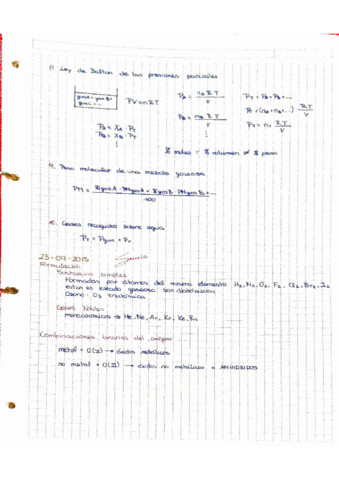 8. Ley de Dalton de las presiones parciales
gas A + gas B +
gas C + ...
PV = nRT
P_A = n_A RT / V
P_B = n_B RT / V
⋮
P_T = P_A + P_B + ...
P_T = (n_A + n_B + ...) RT / V
P_T = n_T RT / V
P_A = X_A · P_T
P_B = X_B · P_T
⋮
% moles = % volumen ≠ % peso
9. Peso molecular de una mezcla gaseosa
PM = % gas A · PM gas A + % gas B · PM gas B + ... / 100
10. Gases recogidos sobre agua
P_T = P gas + P_v
23-09-2015
Formulación
Sustancias simples
Formadas por átomos del mismo elemento H₂, N₂, O₂, F₂, Cl₂, Br₂, I₂
estan es estado gaseoso son diatómicos
Ozono: O₃ triatómica
Gases Nobles
monoatómicos → He, Ne, Ar, Kr, Xe, Rn
Combinaciones binarias del oxígeno
metal + O(II) → óxidos metálicos
no metal + O(II) → óxidos no metálicos = ANHIDRIDOS